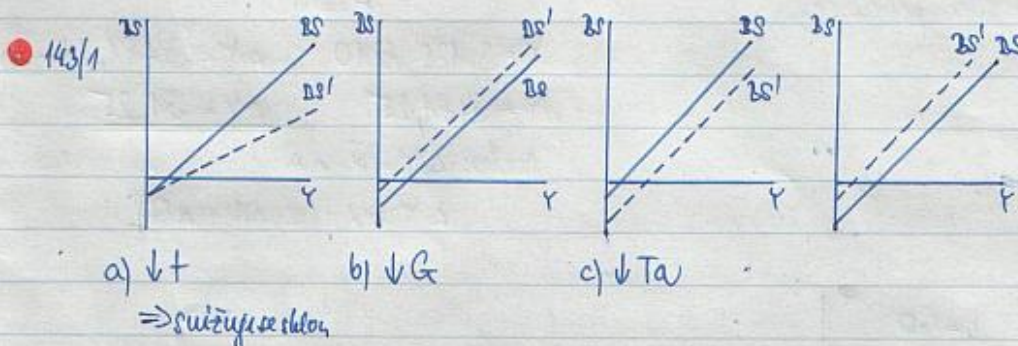 143/1
BS BS BS'
Y
BS BS' BS
Y
BS BS BS'
Y
BS BS' BS
Y
a) ↓t b) ↓G c) ↓Ta
⇒ snižuje se sklon